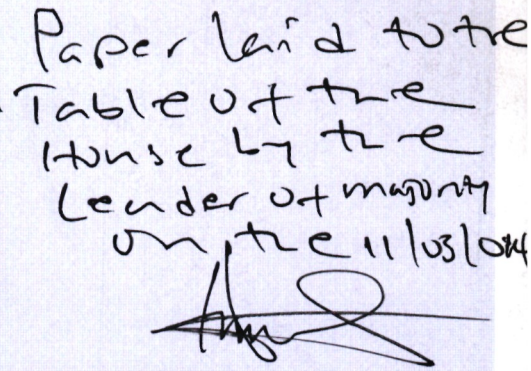 Paper laid to the
Table of the
House by the
Leader of majority
on the 11/03/014